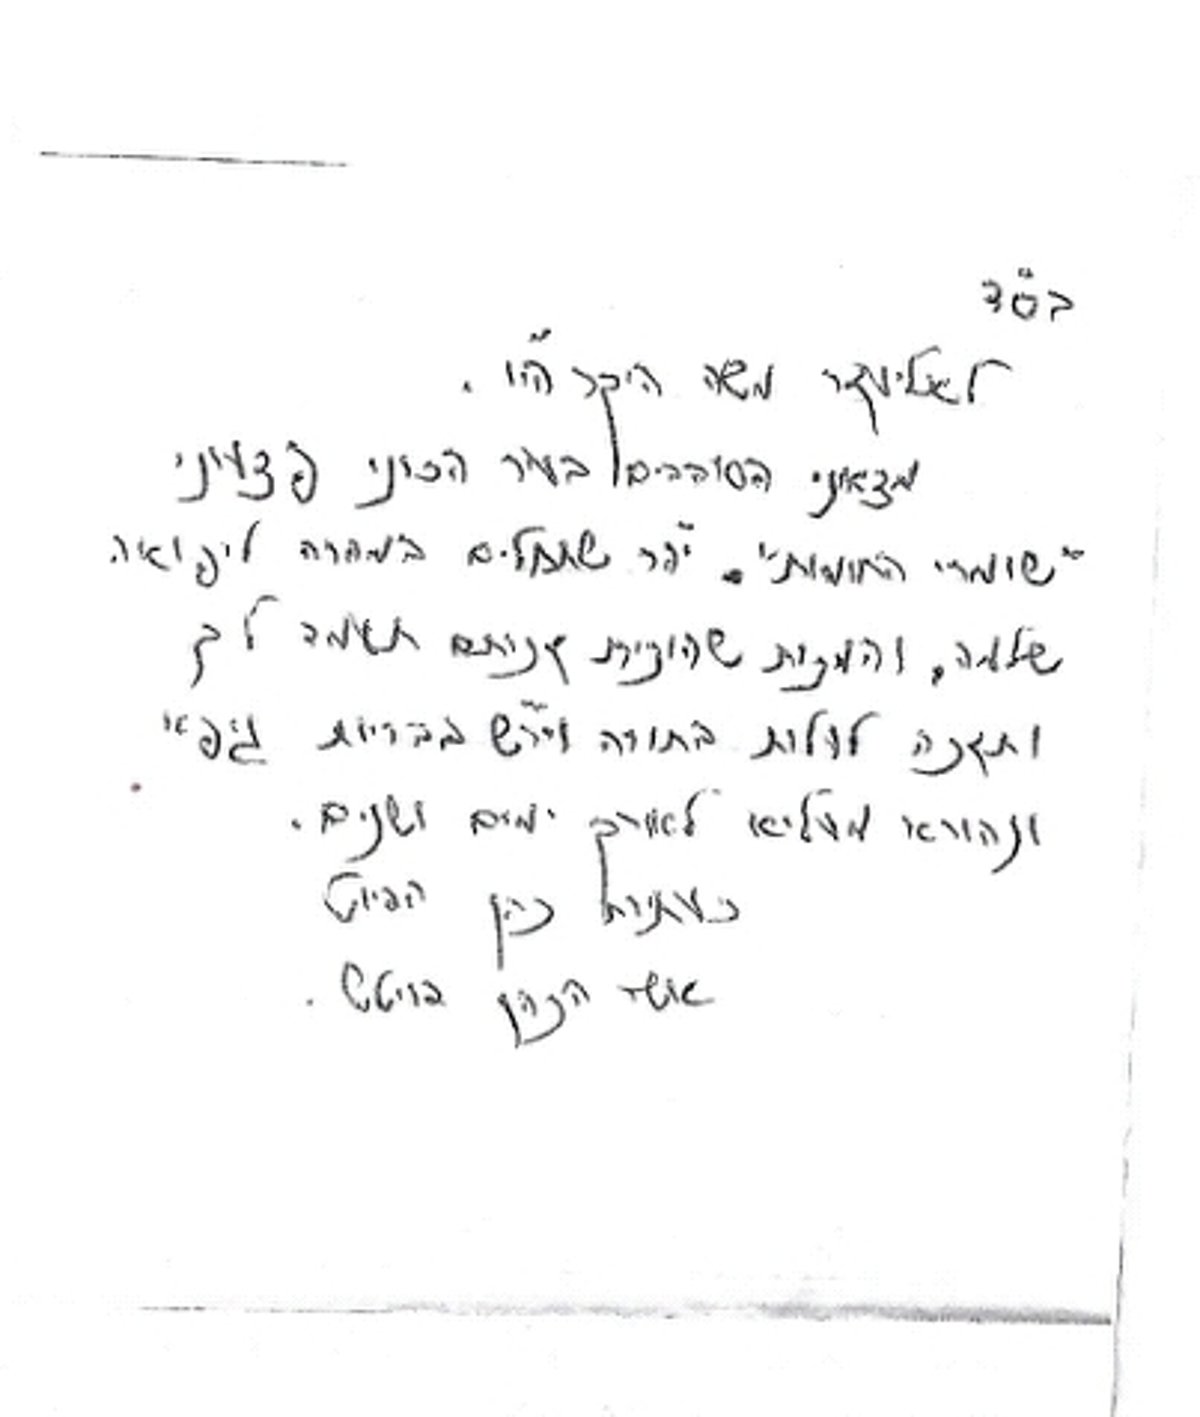 בס"ד
לאליעזר משה היקר הי"ו.
מצאוני הסובבים בעיר הכוני פצעוני
"שומרי החומות". יה"ר שתחלים במהרה לרפואה
שלמה, והמכות שהוכית זכותם תעמד לך
ותזכה לעלות בתורה ויר"ש בבריות גופא
ונהורא מעליא לאורך ימים ושנים.
כעתירת כהן הביוט
אשר הכהן בויטש.